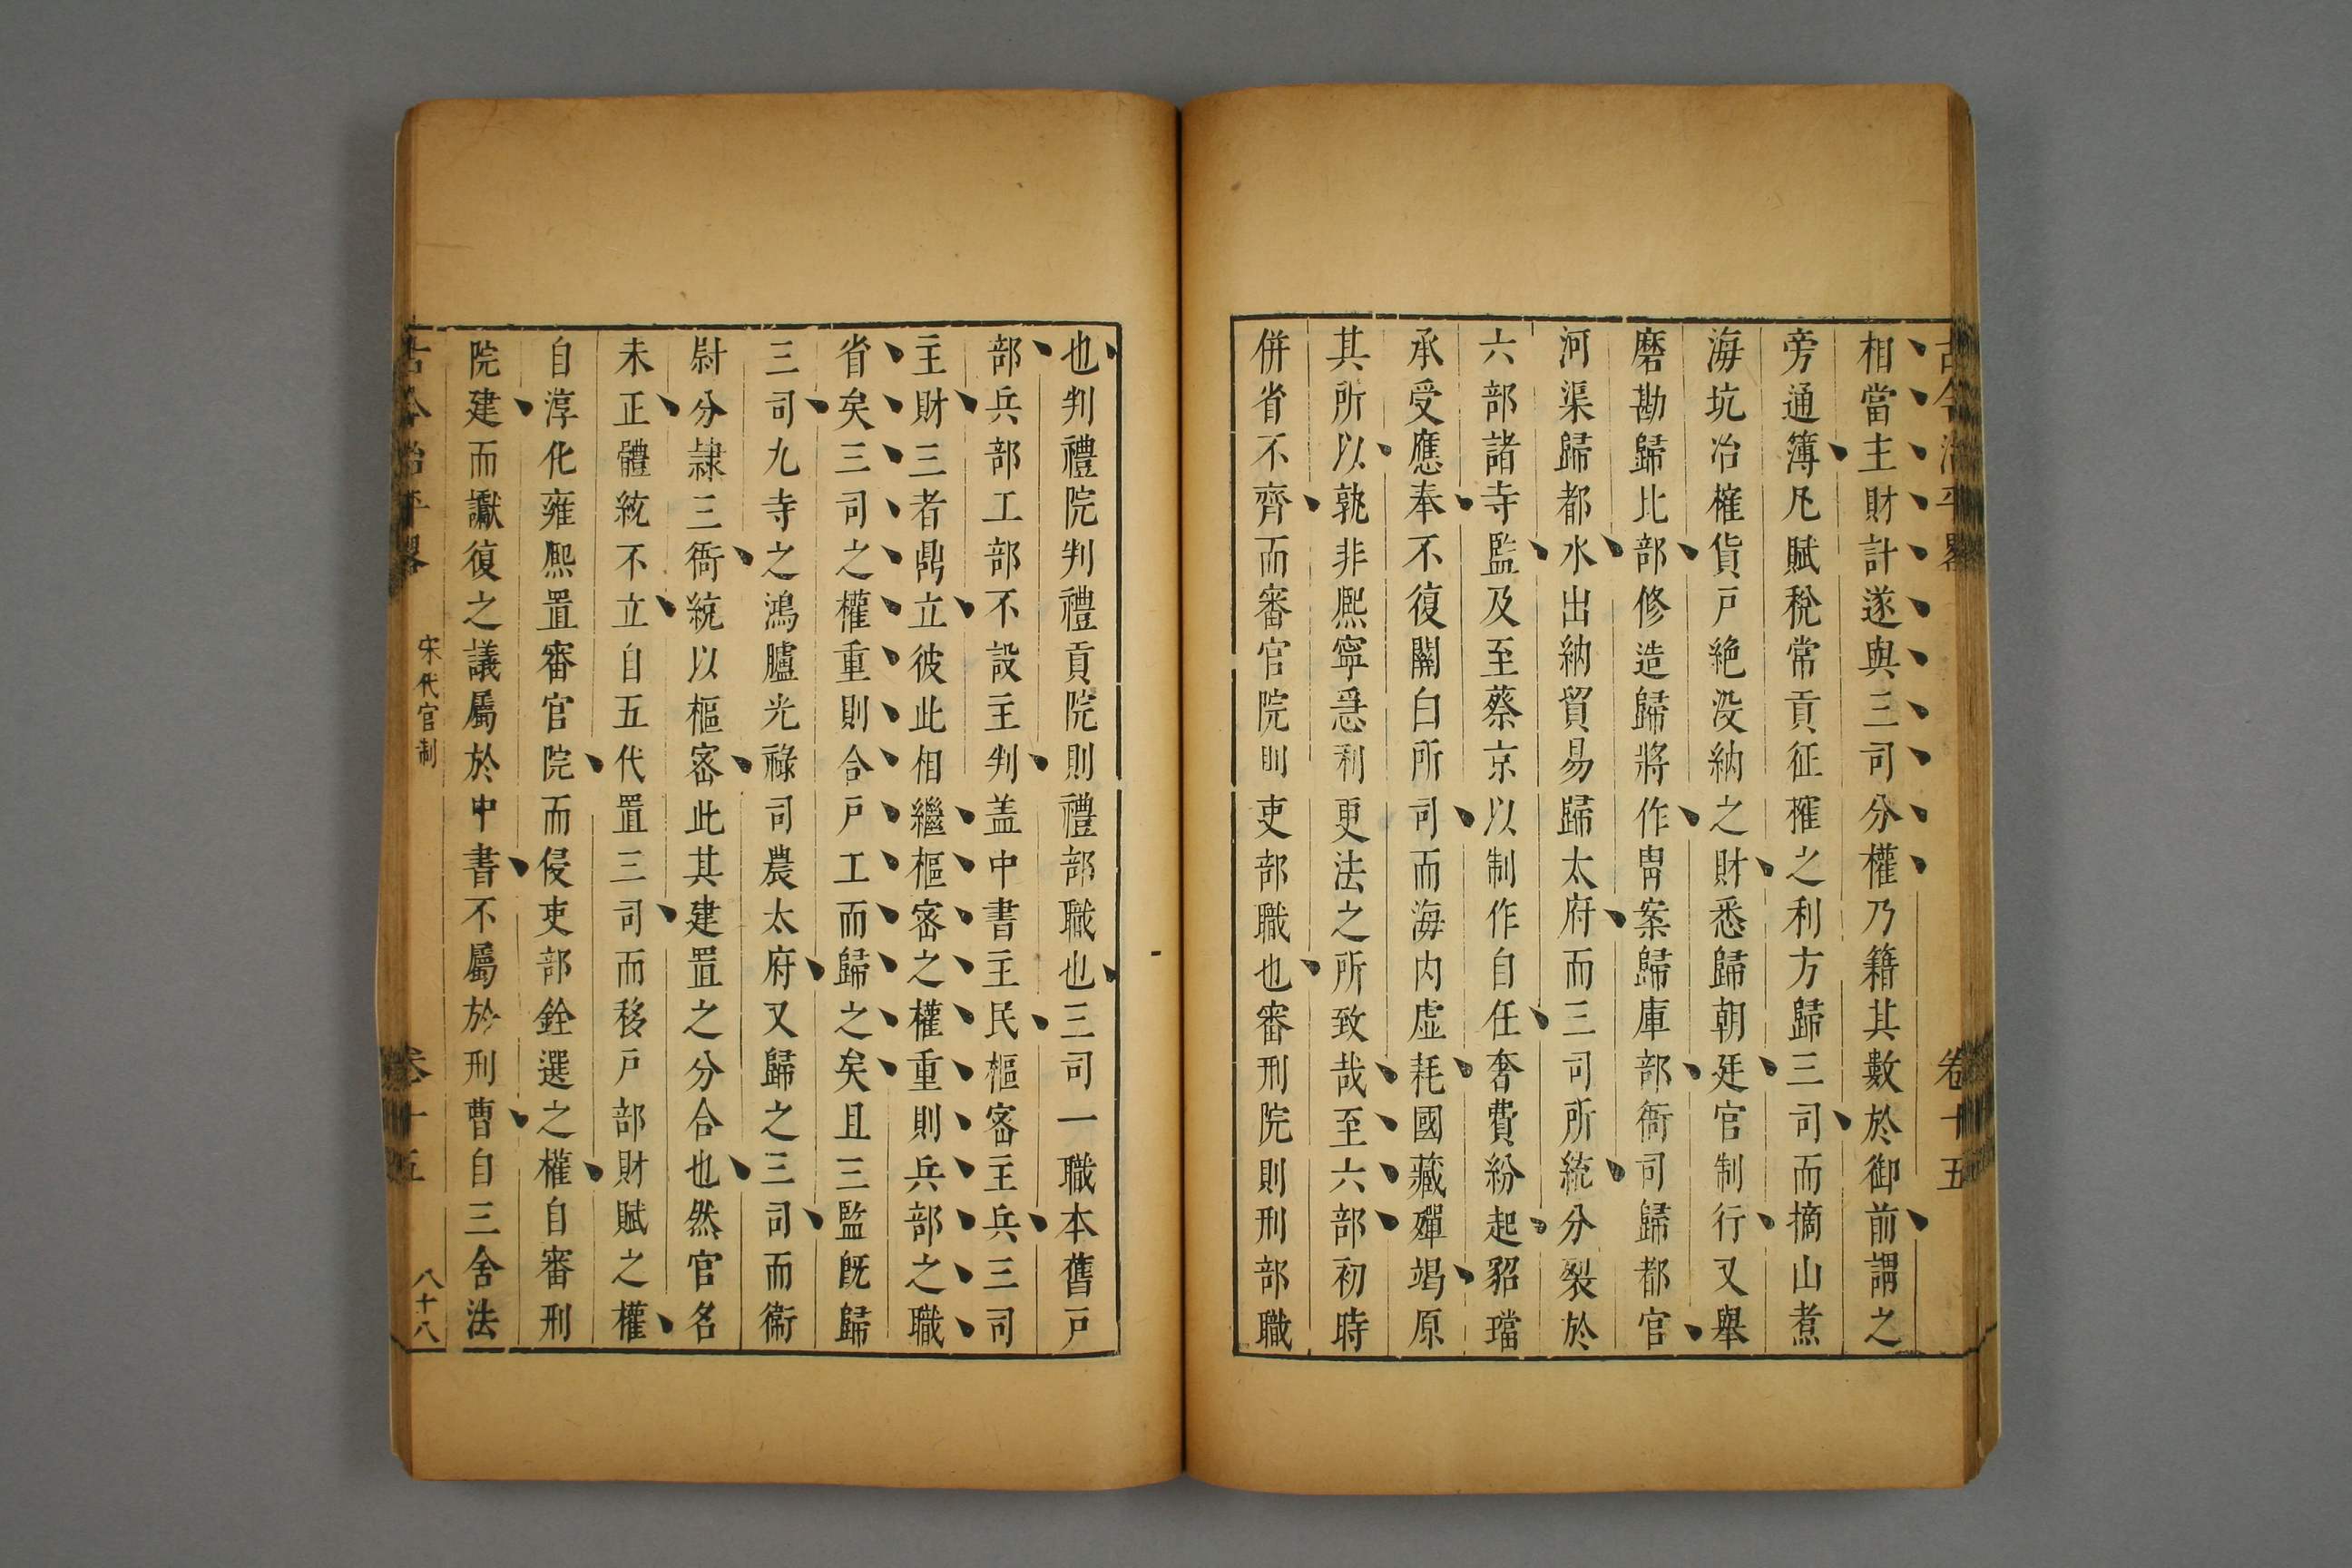 古今治平畧 卷十五
相當主財計遂與三司分權乃籍其數於御前謂之
旁通簿凡賦稅常貢征榷之利方歸三司而摘山煮
海坑冶榷貨戸絶没納之財悉歸朝廷官制行又舉
磨勘歸比部修造歸將作冑案歸庫部衙司歸都官
河渠歸都水出納貿易歸太府而三司所統分裂於
六部諸寺監及至蔡京以制作自任奢費紛起貂璫
承受應奉不復關白所司而海内虛耗國藏殫竭原
其所以孰非熙寧急利更法之所致哉至六部初時
併省不齊而審官院則吏部職也審刑院則刑部職
也判禮院判禮貢院則禮部職也三司一職本舊戸
部兵部工部不設主判盖中書主民樞宻主兵三司
主財三者鼎立彼此相繼樞宻之權重則兵部之職
省矣三司之權重則合戸工而歸之矣且三監既歸
三司九寺之鴻臚光祿司農太府又歸之三司而衞
尉分隷三衙統以樞宻此其建置之分合也然官名
未正體統不立自五代置三司而移戸部財賦之權
自淳化雍熙置審官院而侵吏部銓選之權自審刑
院建而讞復之議屬於中書不屬於刑曹自三舍法
古今治平畧 宋代官制 卷十五 八十八